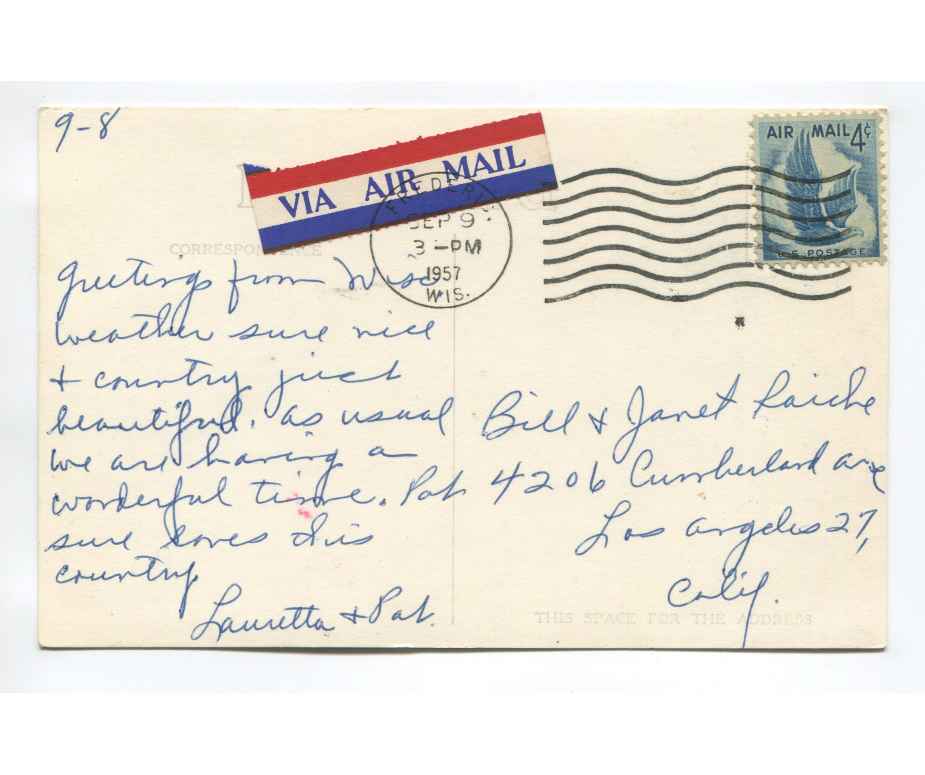 9-8
VIA AIR MAIL
FREDERIC
SEP 9
3-PM
1957
WIS.
AIR MAIL 4¢
U.S. POSTAGE
CORRESPONDENCE
Greetings from Wisc
weather sure nice
& country just
beautiful. as usual
we are having a
wonderful time. Pat
sure loves this
country
Lauretta & Pat.
Bill & Janet Raiche
4206 Cumberland ave
Los Angeles 27,
Calif.
THIS SPACE FOR THE ADDRESS